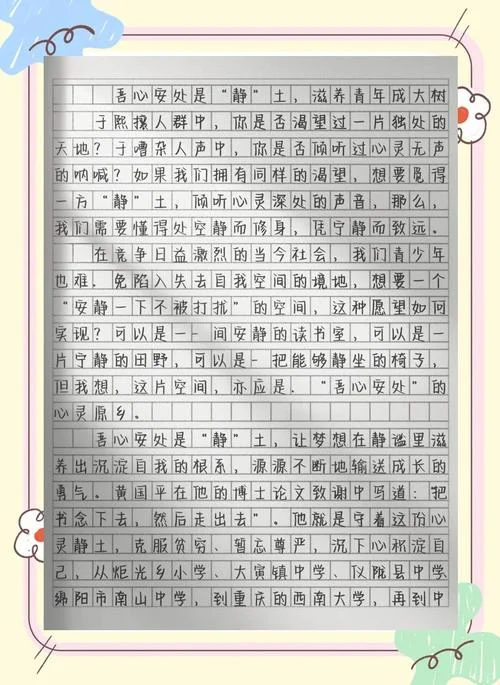 吾心安处是“静”土，滋养青年成大树
于熙攘人群中，你是否渴望过一片独处的
天地？于嘈杂人声中，你是否倾听过心灵无声
的呐喊？如果我们拥有同样的渴望，想要觅得
一方“静”土，倾听心灵深处的声音，那么，
我们需要懂得处空静而修身，凭宁静而致远。
在竞争日益激烈的当今社会，我们青少年
也难.免陷入失去自我空间的境地，想要一个
“安静一下不被打扰”的空间，这种愿望如何
实现？可以是一-间安静的读书室，可以是一
片宁静的田野，可以是-把能够静坐的椅子，
但我想，这片空间，亦应是.“吾心安处”的
心灵原乡。
吾心安处是“静”土，让梦想在静谧里滋
养出沉淀自我的根系，源源不断地输送成长的
勇气。黄国平在他的博士论文致谢中写道：把
书念下去，然后走出去”。他就是守着这份心
灵静土，克服贫穷、暂忘尊严，沉下心积淀自
己，从炬光乡小学、大寅镇中学、仪陇县中学、
绵阳市南山中学，到重庆的西南大学，再到中